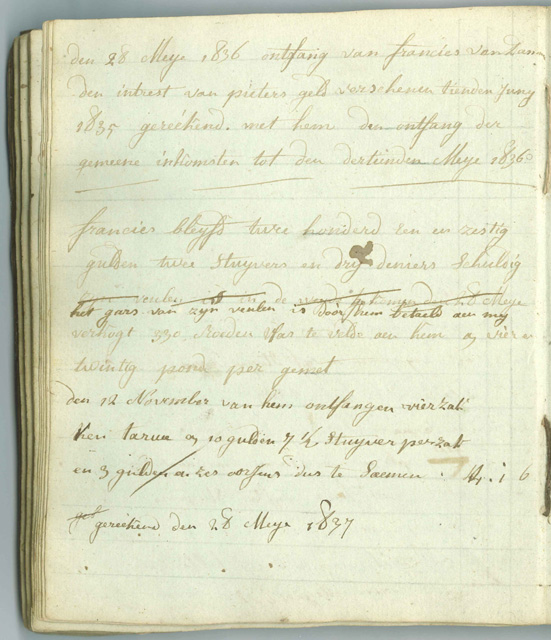 den 28 Meye 1836 ontfang van francies van Dam
den intrest van pieters geld verschenen tienden Juny
1835 gereekend met hem den ontfang der
gemeene inkomsten tot den dertienden Meye 1836
francies blyft twee honderd een en zestig
gulden twee stuyvers en dry deniers schuldig
veulen in de 28 Meye
het gars van zyn veulen is door hem betaeld aen my
verkogt 330 Roeden Vlas te velde aen hem a vier en
twintig pond per gemet
den 12 November van hem ontfangen vier zak
ken tarwe a 10 gulden 7 ½ stuyver per zak
en 3 gulden zes dus te saemen 4 : 1 6
gereekend den 28 Meye 1837